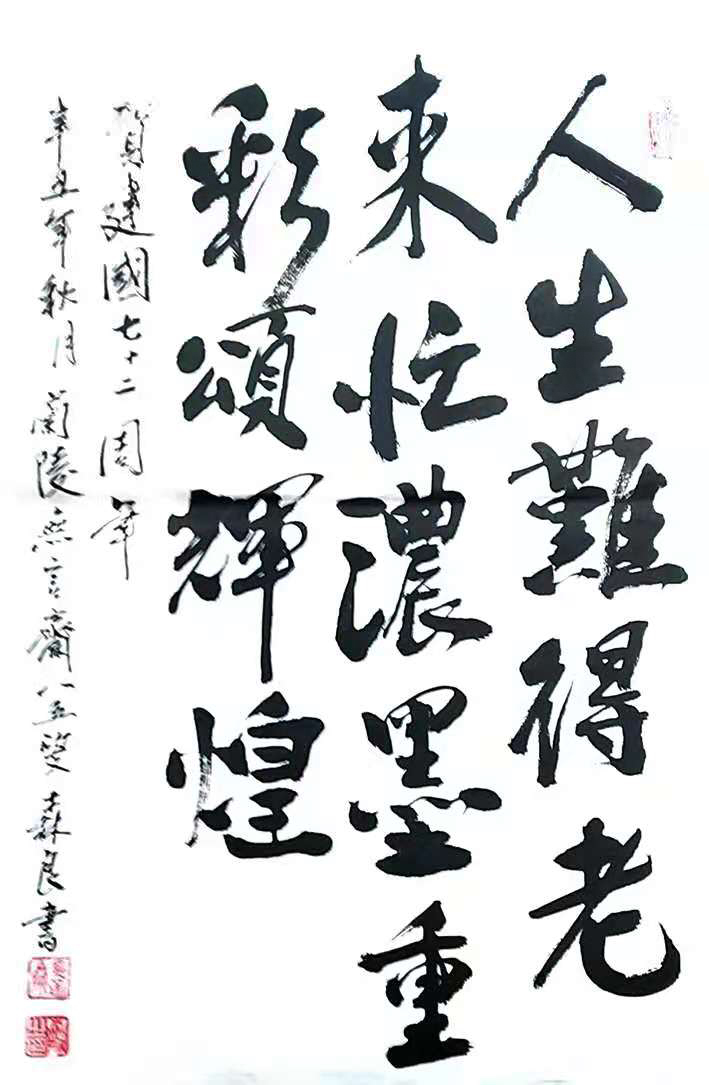 人生難得老
来忙濃墨重
彩頌輝煌
賀建國七十二周年
辛丑年秋月蘭陵無言齋八五叟森良書